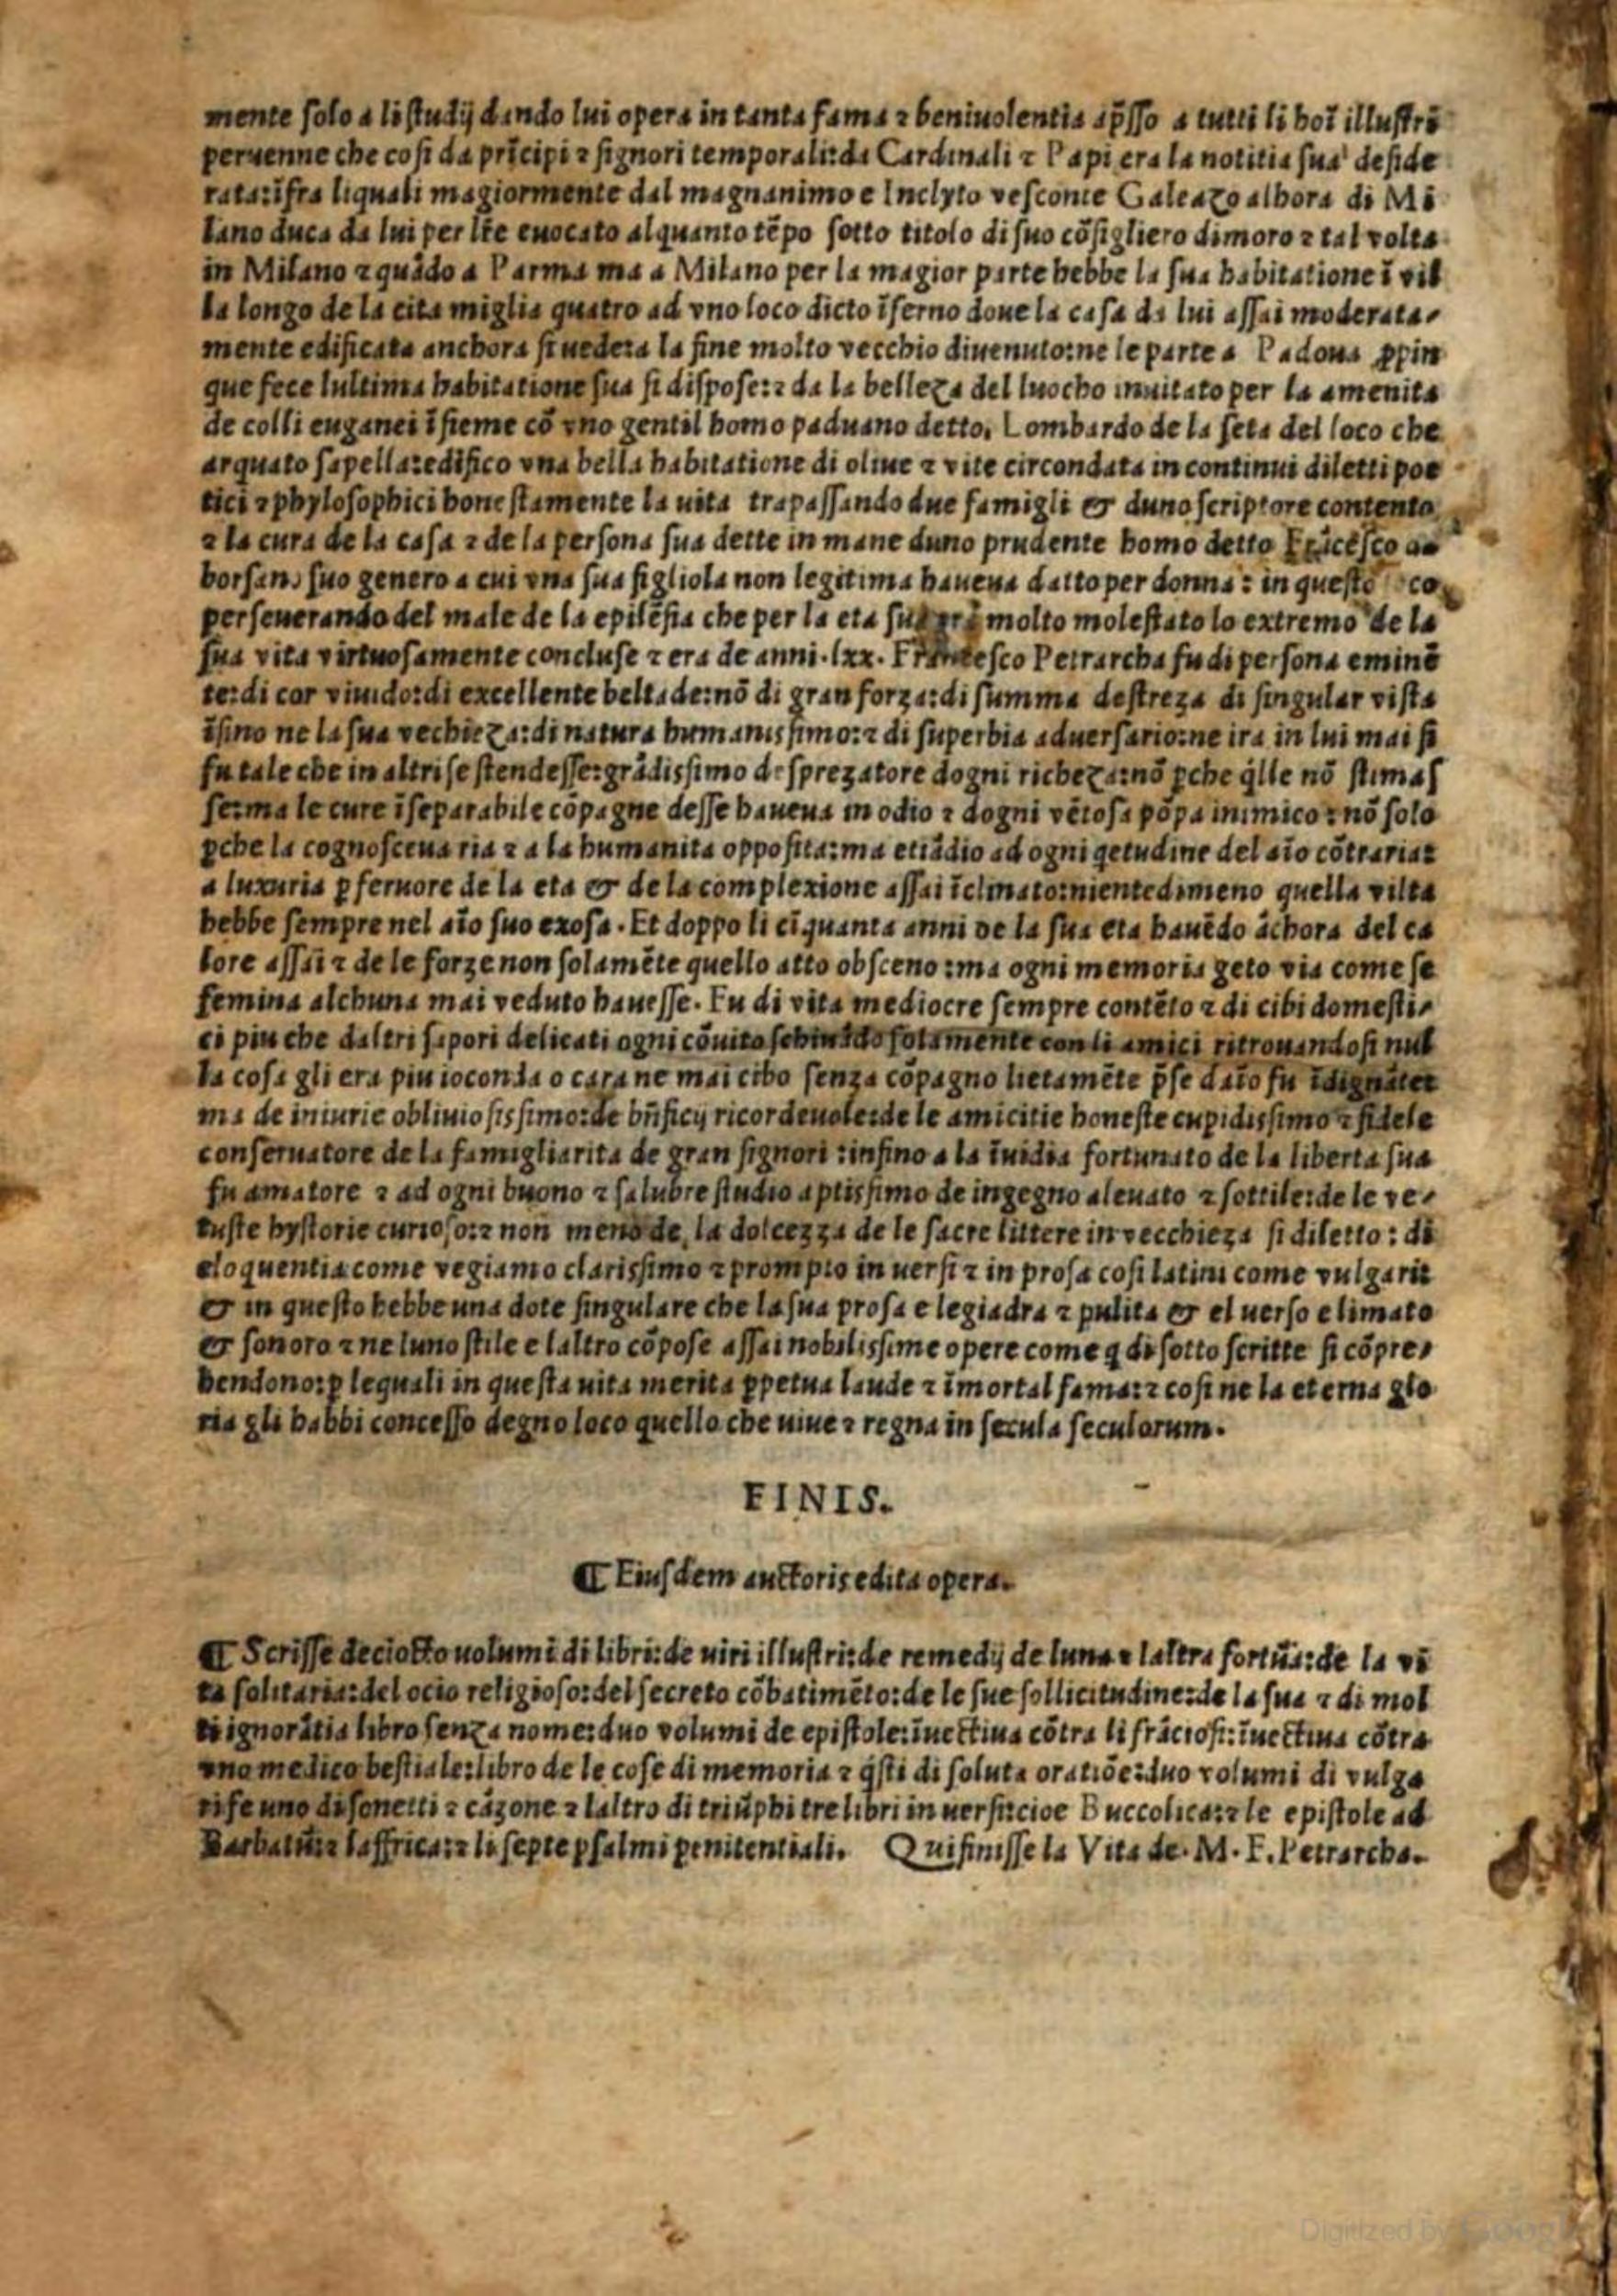 mente ſolo a li ſtudij dando lui opera in tanta fama ⁊ beniuolentia ap̄ſſo a tutti li hoī illuſtri
peruenne che coſi da prīcipi ⁊ ſignori temporali:da Cardinali ⁊ Papi era la notitia ſua deſide
rata:īfra liquali magiormente dal magnanimo e Inclyto veſconte Galeazo alhora di Mi
lano duca da lui per lr̄e euocato alquanto tēpo ſotto titolo di ſuo cōſigliero dimoro ⁊ tal volta
in Milano ⁊ quādo a Parma ma a Milano per la magior parte hebbe la ſua habitatione ī vil
la longo de la cita miglia quatro ad vno loco dicto īferno doue la caſa da lui aſſai moderata-
mente edificata anchora ſi uede:a la fine molto vecchio diuenuto:ne le parte a Padoua ꝓpin
que fece lultima habitatione ſua ſi diſpoſe:⁊ da la belleza del luocho inuitato per la amenita
de colli euganei īſieme cō vno gentil homo paduano detto. Lombardo de la ſeta del loco che
arquato ſapella:edifico vna bella habitatione di oliue ⁊ vite circondata in continui diletti poe
tici ⁊ phyloſophici honeſtamente la uita trapaſſando due famigli & duno ſcriptore contento
⁊ la cura de la caſa ⁊ de la perſona ſua dette in mane duno prudente homo detto Frāceſco da
borſano ſuo genero a cui vna ſua figliola non legitima haueua datto per donna: in queſto co
perſeuerando del male de la epilēſia che per la eta ſua era molto moleſtato lo extremo de la
ſua vita virtuoſamente concluſe ⁊ era de anni.lxx. Franceſco Petrarcha fu di perſona eminē
te:di cor viuido:di excellente beltade:nō di gran forza:di ſumma deſtreza di ſingular viſta
īſino ne la ſua vechieza:di natura humaniſſimo:⁊ di ſuperbia aduerſario:ne ira in lui mai ſi
fu tale che in altri ſe ſtendeſſe:grādiſſimo deſprezatore dogni richeza:nō ꝑche q̄lle nō ſtimaſ
ſe:ma le cure īſeparabile cōpagne deſſe haueua in odio ⁊ dogni vētoſa pōpa inimico:nō ſolo
ꝑche la cognoſceua ria ⁊ a la humanita oppoſita:ma etiādio ad ogni q̄etudine del aīo cōtraria:
a luxuria ꝑ feruore de la eta & de la complexione aſſai īclinato:nientedimeno quella vilta
hebbe ſempre nel aīo ſuo exoſa. Et doppo li cīquanta anni de la ſua eta hauēdo āchora del ca
lore aſſai ⁊ de le forze non ſolamēte quello atto obſceno:ma ogni memoria geto via come ſe
femina alchuna mai veduto haueſſe. Fu di vita mediocre ſempre contēto ⁊ di cibi domeſti-
ci piu che daltri ſapori delicati ogni cōuito ſchiuādo ſolamente con li amici ritrouandoſi nul
la coſa gli era piu ioconda o cara ne mai cibo ſenza cōpagno lietamēte p̄ſe daīo fu īdignāte:
ma de iniurie obliuioſiſſimo:de bn̄ficij ricordeuole:de le amicitie honeſte cupidiſſimo ⁊ fidele
conſeruatore de la famigliarita de gran ſignori:infino a la īuidia fortunato de la liberta ſua
fu amatore ⁊ ad ogni buono ⁊ ſalubre ſtudio aptiſſimo de ingegno aleuato ⁊ ſottile:de le ve-
tuſte hyſtorie curioſo:⁊ non meno de la dolcezza de le ſacre littere in vecchieza ſi diletto: di
eloquentia come vegiamo clariſſimo ⁊ prompto in uerſi ⁊ in proſa coſi latini come vulgari:
& in queſto hebbe una dote ſingulare che la ſua proſa e legiadra ⁊ pulita & el uerſo e limato
& ſonoro ⁊ ne luno ſtile e laltro cōpoſe aſſai nobiliſſime opere come q̄ di ſotto ſcritte ſi cōpre-
hendono:ꝑ lequali in queſta uita merita ꝑpetua laude ⁊ īmortal fama:⁊ coſi ne la eterna glo
ria gli habbi conceſſo degno loco quello che uiue ⁊ regna in ſecula ſeculorum.
FINIS.
¶ Eiuſdem auctoris edita opera.
¶ Scriſſe deciotto uolumī di libri:de uiri illuſtri:de remedij de luna ⁊ laltra fortūa:de la vi
ta ſolitaria:del ocio religioſo:del ſecreto cōbatimēto:de le ſue ſollicitudine:de la ſua ⁊ di mol
ti ignorātia libro ſenza nome:duo volumi de epiſtole:īuectiua cōtra li frācioſi:īuectiua cōtra
vno medico beſtiale:libro de le coſe di memoria ⁊ q̄ſti di ſoluta oratiōe:duo volumi di vulga
ri fe uno di ſonetti ⁊ cāzone ⁊ laltro di triūphi tre libri in uerſi:cioe Buccolica:⁊ le epiſtole ad
Barbatū:⁊ laffrica:⁊ li ſepte pſalmi penitentiali. Qui finiſſe la Vita de. M. F. Petrarcha.
Digitized by Google